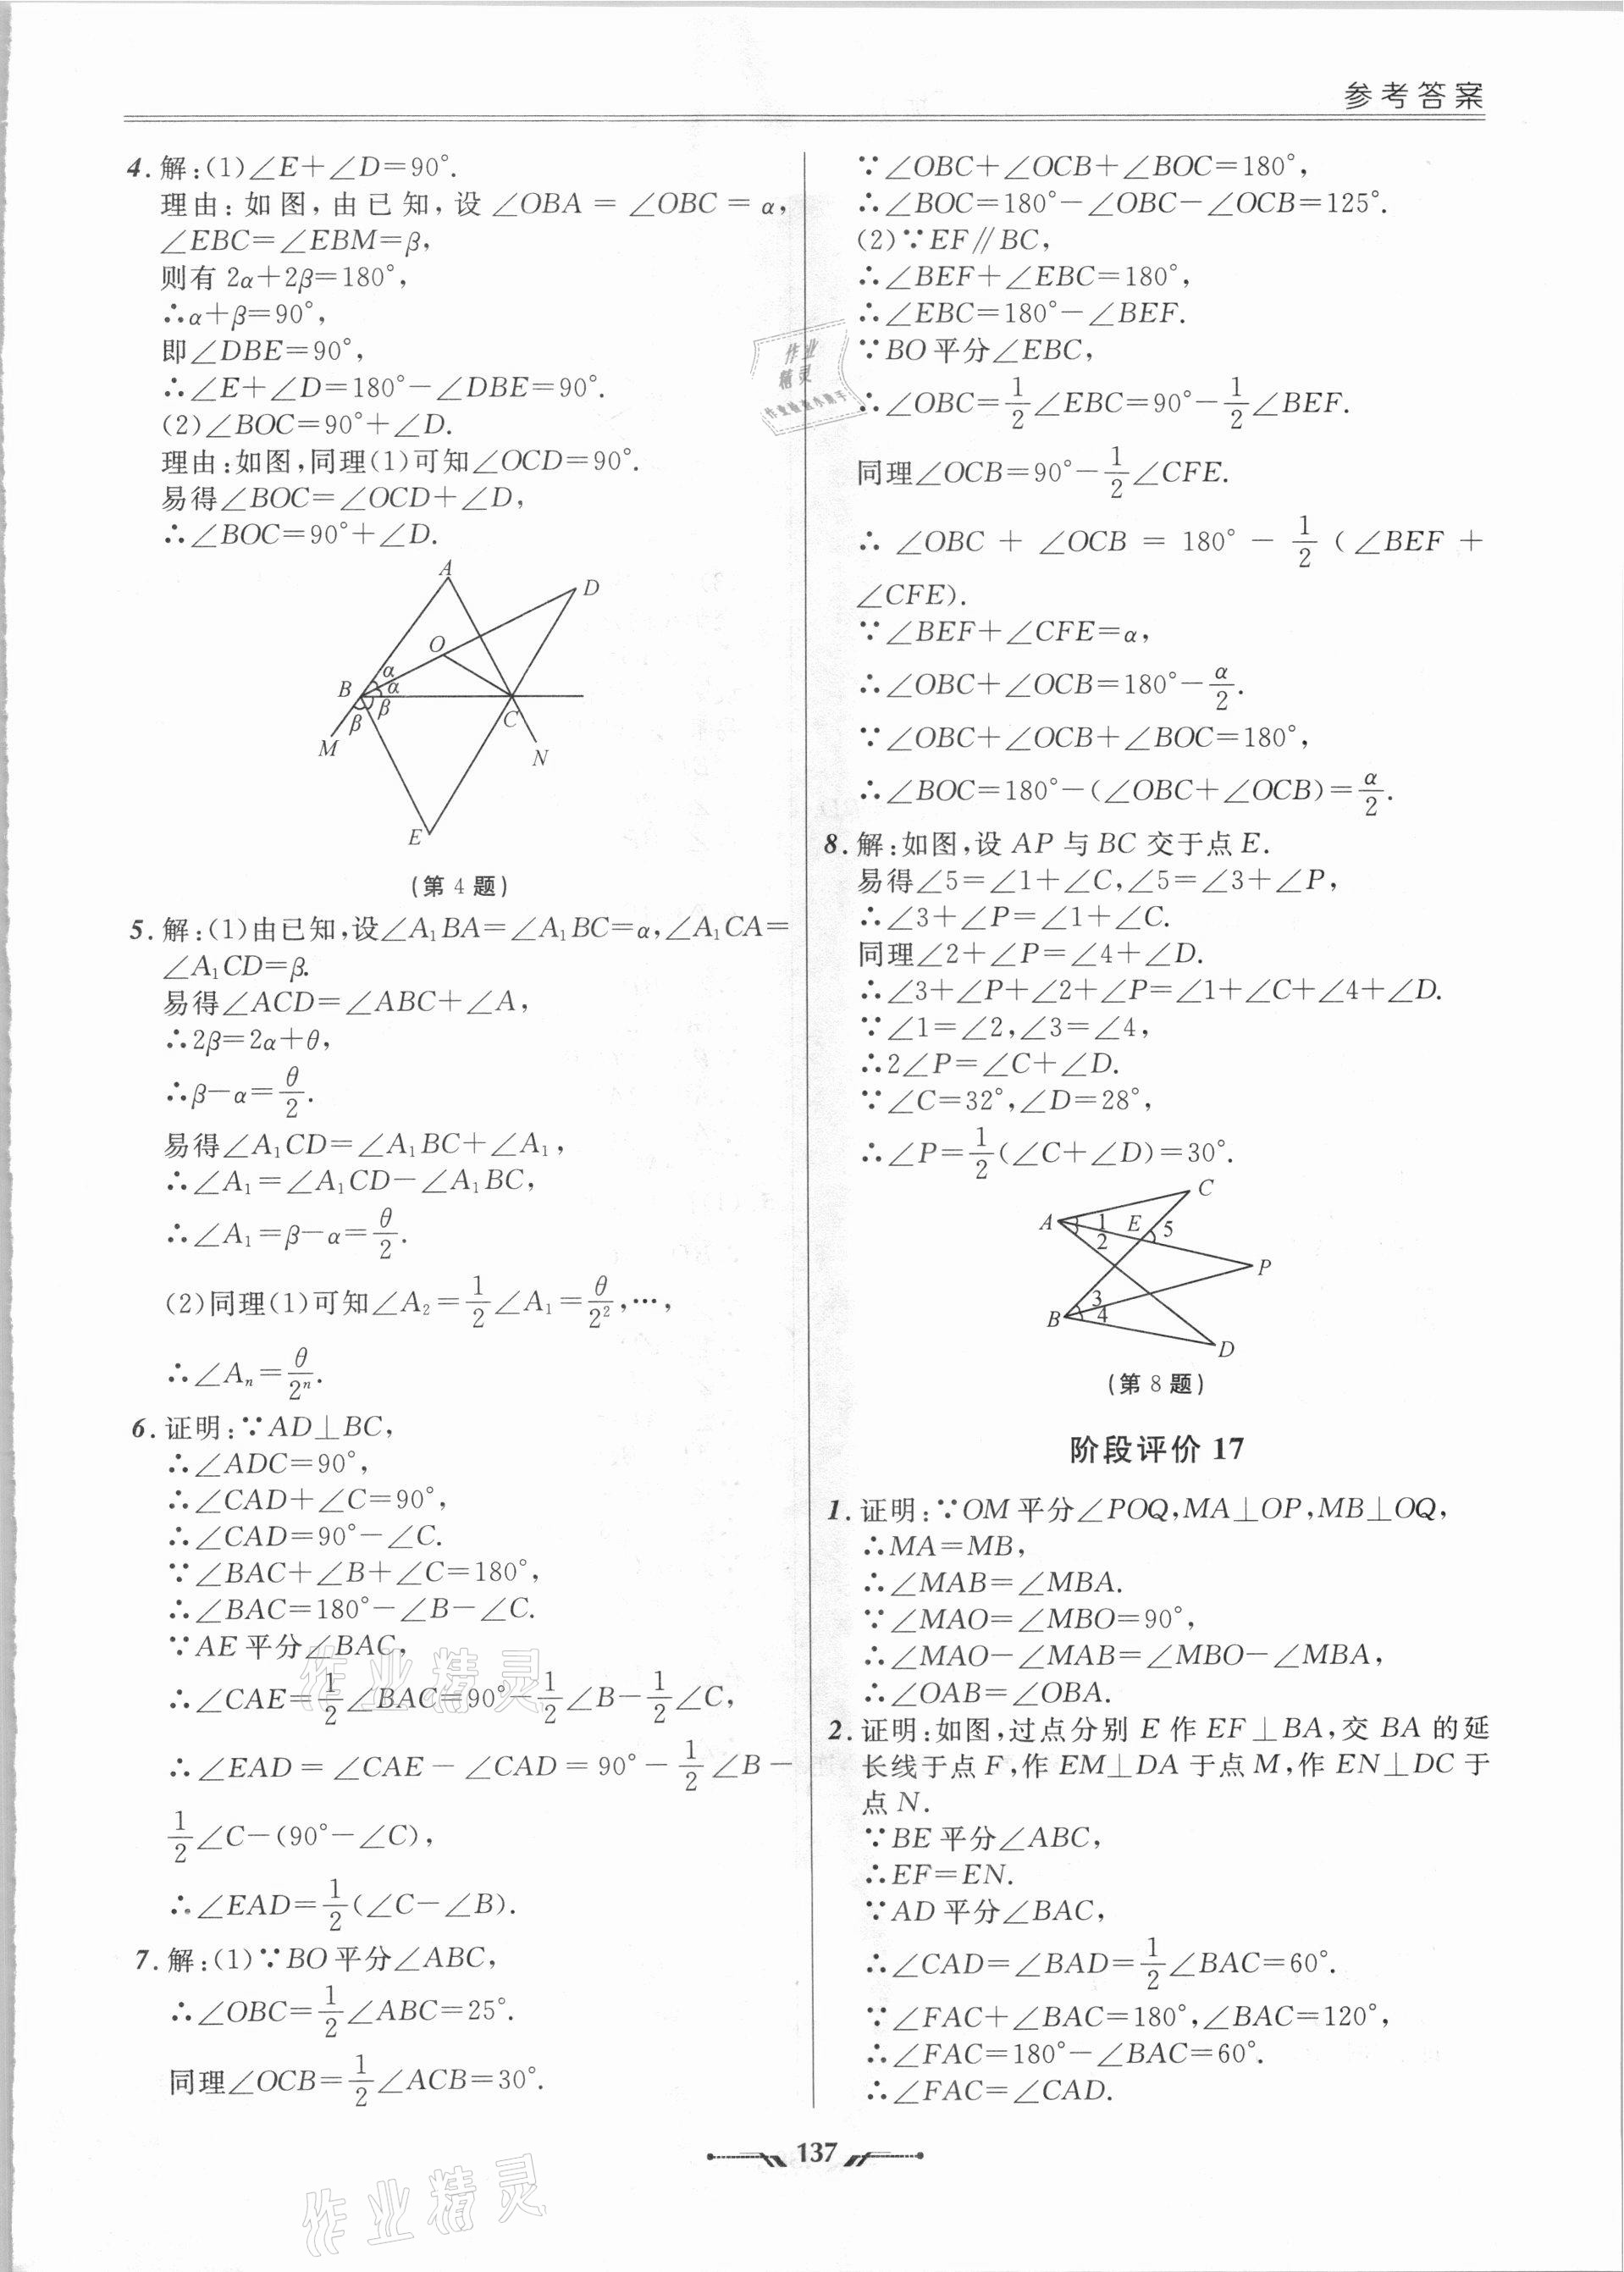 参考答案
4. 解:(1)∠E+∠D=90°.
理由:如图,由已知,设∠OBA=∠OBC=α,
∠EBC=∠EBM=β,
则有 2α+2β=180°,
∴α+β=90°,
即∠DBE=90°,
∴∠E+∠D=180°-∠DBE=90°.
(2)∠BOC=90°+∠D.
理由:如图,同理(1)可知∠OCD=90°.
易得∠BOC=∠OCD+∠D,
∴∠BOC=90°+∠D.
A
D
O
α
B
α
β
β
C
M
N
E
(第 4 题)
5. 解:(1)由已知,设∠A₁BA=∠A₁BC=α,∠A₁CA=
∠A₁CD=β.
易得∠ACD=∠ABC+∠A,
∴2β=2α+θ,
∴β-α=θ/2.
易得∠A₁CD=∠A₁BC+∠A₁,
∴∠A₁=∠A₁CD-∠A₁BC,
∴∠A₁=β-α=θ/2.
(2)同理(1)可知∠A₂=1/2∠A₁=θ/2²,…,
∴∠Aₙ=θ/2ⁿ.
6. 证明:∵AD⊥BC,
∴∠ADC=90°,
∴∠CAD+∠C=90°,
∴∠CAD=90°-∠C.
∵∠BAC+∠B+∠C=180°,
∴∠BAC=180°-∠B-∠C.
∵AE 平分∠BAC,
∴∠CAE=1/2∠BAC=90°-1/2∠B-1/2∠C,
∴∠EAD=∠CAE-∠CAD=90°-1/2∠B-
1/2∠C-(90°-∠C),
∴∠EAD=1/2(∠C-∠B).
7. 解:(1)∵BO 平分∠ABC,
∴∠OBC=1/2∠ABC=25°.
同理∠OCB=1/2∠ACB=30°.
∵∠OBC+∠OCB+∠BOC=180°,
∴∠BOC=180°-∠OBC-∠OCB=125°.
(2)∵EF∥BC,
∴∠BEF+∠EBC=180°,
∴∠EBC=180°-∠BEF.
∵BO 平分∠EBC,
∴∠OBC=1/2∠EBC=90°-1/2∠BEF.
同理∠OCB=90°-1/2∠CFE.
∴∠OBC+∠OCB=180°-1/2(∠BEF+
∠CFE).
∵∠BEF+∠CFE=α,
∴∠OBC+∠OCB=180°-α/2.
∵∠OBC+∠OCB+∠BOC=180°,
∴∠BOC=180°-(∠OBC+∠OCB)=α/2.
8. 解:如图,设 AP 与 BC 交于点 E.
易得∠5=∠1+∠C,∠5=∠3+∠P,
∴∠3+∠P=∠1+∠C.
同理∠2+∠P=∠4+∠D.
∴∠3+∠P+∠2+∠P=∠1+∠C+∠4+∠D.
∵∠1=∠2,∠3=∠4,
∴2∠P=∠C+∠D.
∵∠C=32°,∠D=28°,
∴∠P=1/2(∠C+∠D)=30°.
C
A
1
E
5
2
P
3
B
4
D
(第 8 题)
阶段评价 17
1. 证明:∵OM 平分∠POQ,MA⊥OP,MB⊥OQ,
∴MA=MB,
∴∠MAB=∠MBA.
∵∠MAO=∠MBO=90°,
∴∠MAO-∠MAB=∠MBO-∠MBA,
∴∠OAB=∠OBA.
2. 证明:如图,过点分别 E 作 EF⊥BA,交 BA 的延
长线于点 F,作 EM⊥DA 于点 M,作 EN⊥DC 于
点 N.
∵BE 平分∠ABC,
∴EF=EN.
∵AD 平分∠BAC,
∴∠CAD=∠BAD=1/2∠BAC=60°.
∵∠FAC+∠BAC=180°,∠BAC=120°,
∴∠FAC=180°-∠BAC=60°.
∴∠FAC=∠CAD.
137
作业精灵
作业精灵
作业
精灵